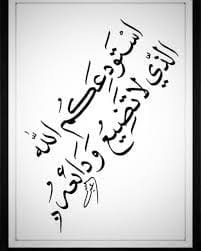 استودعكم الله
الذي لا تضيع ودائعه